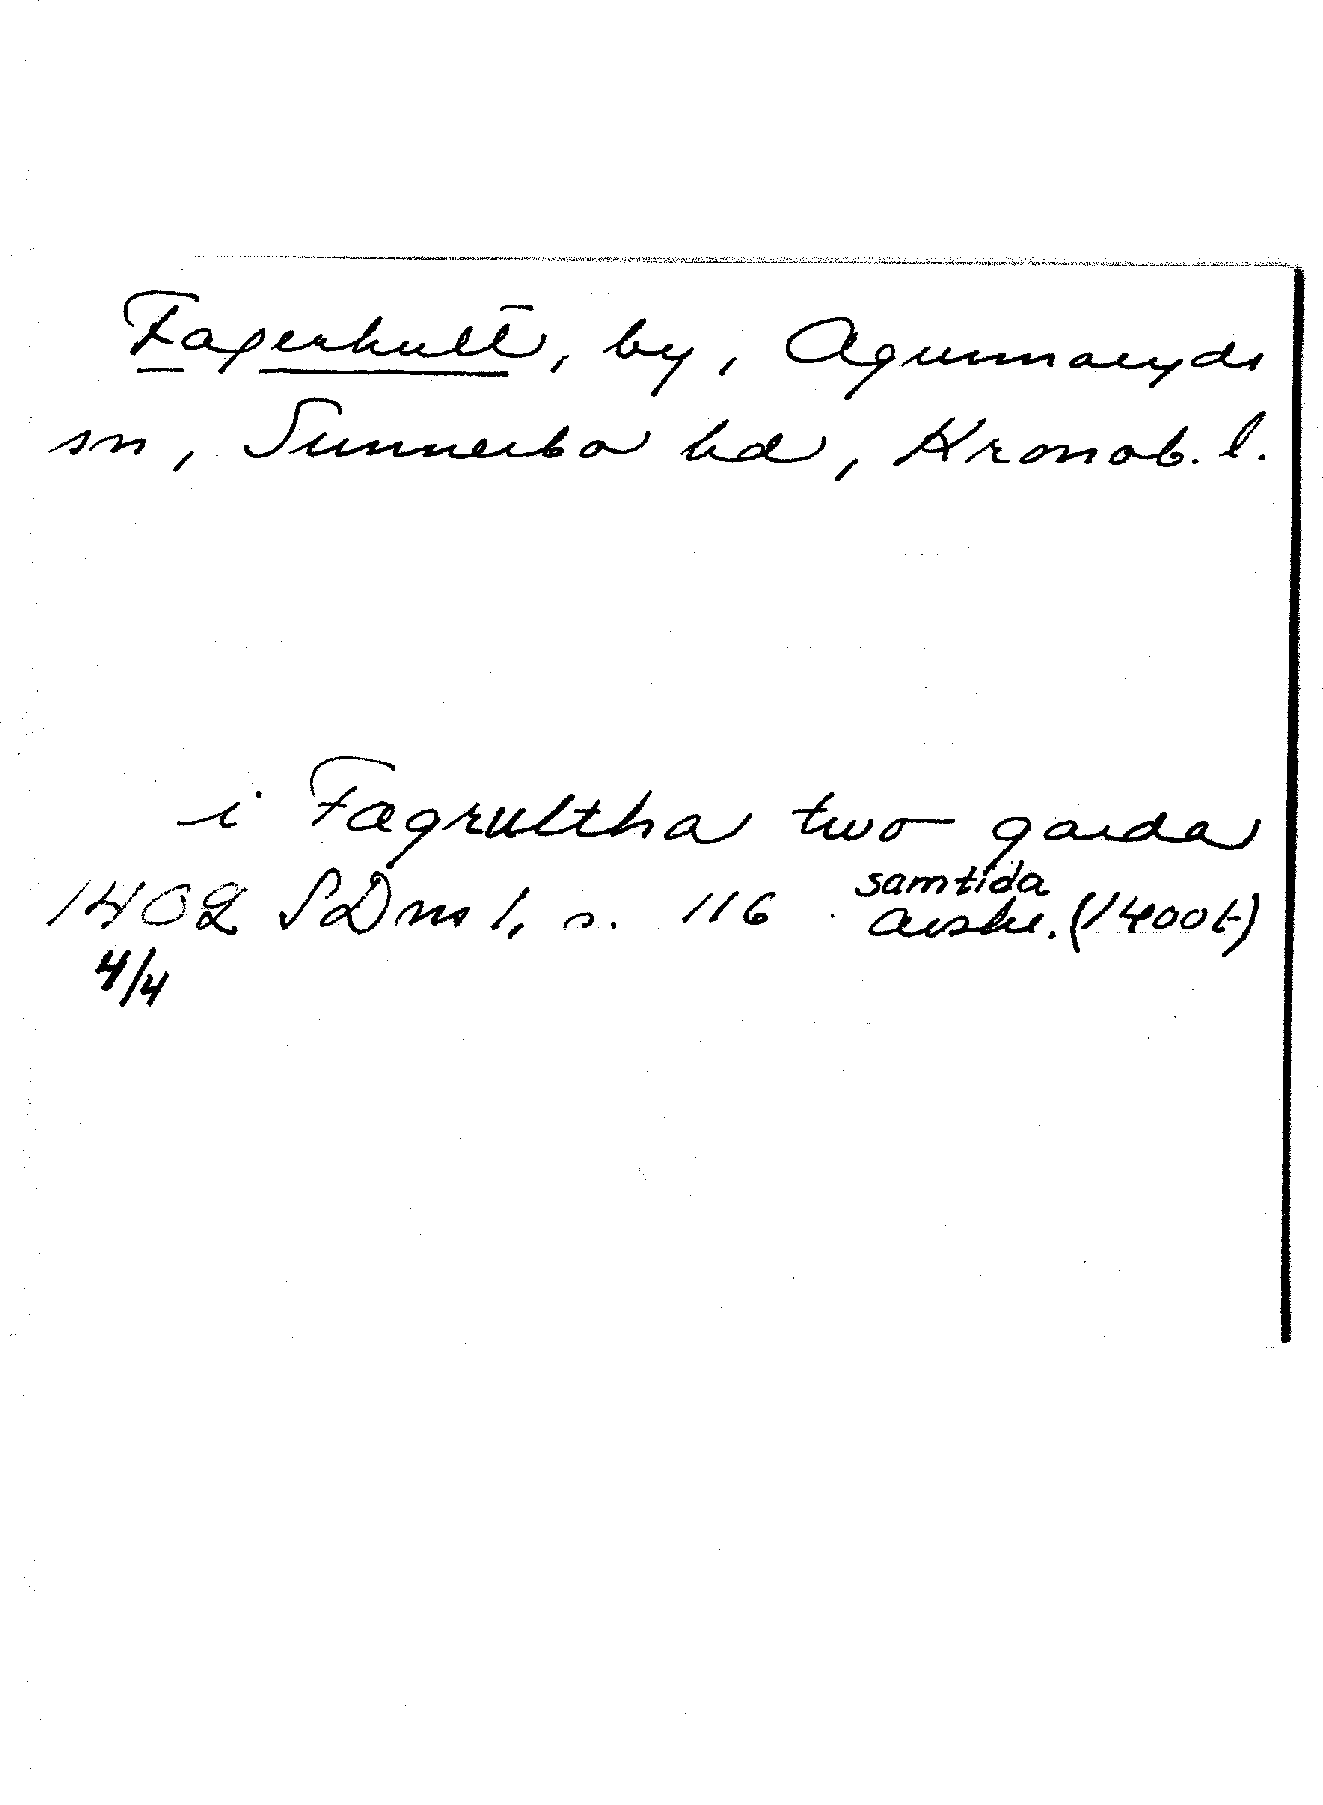 Fagerhult, by, Agunnaryds
sn, Sunnerbo hd, Kronob. l.
i Fagrultha two garda
samtida
1402 SDns 1, s. 116 avskr. (1400t)
4/4